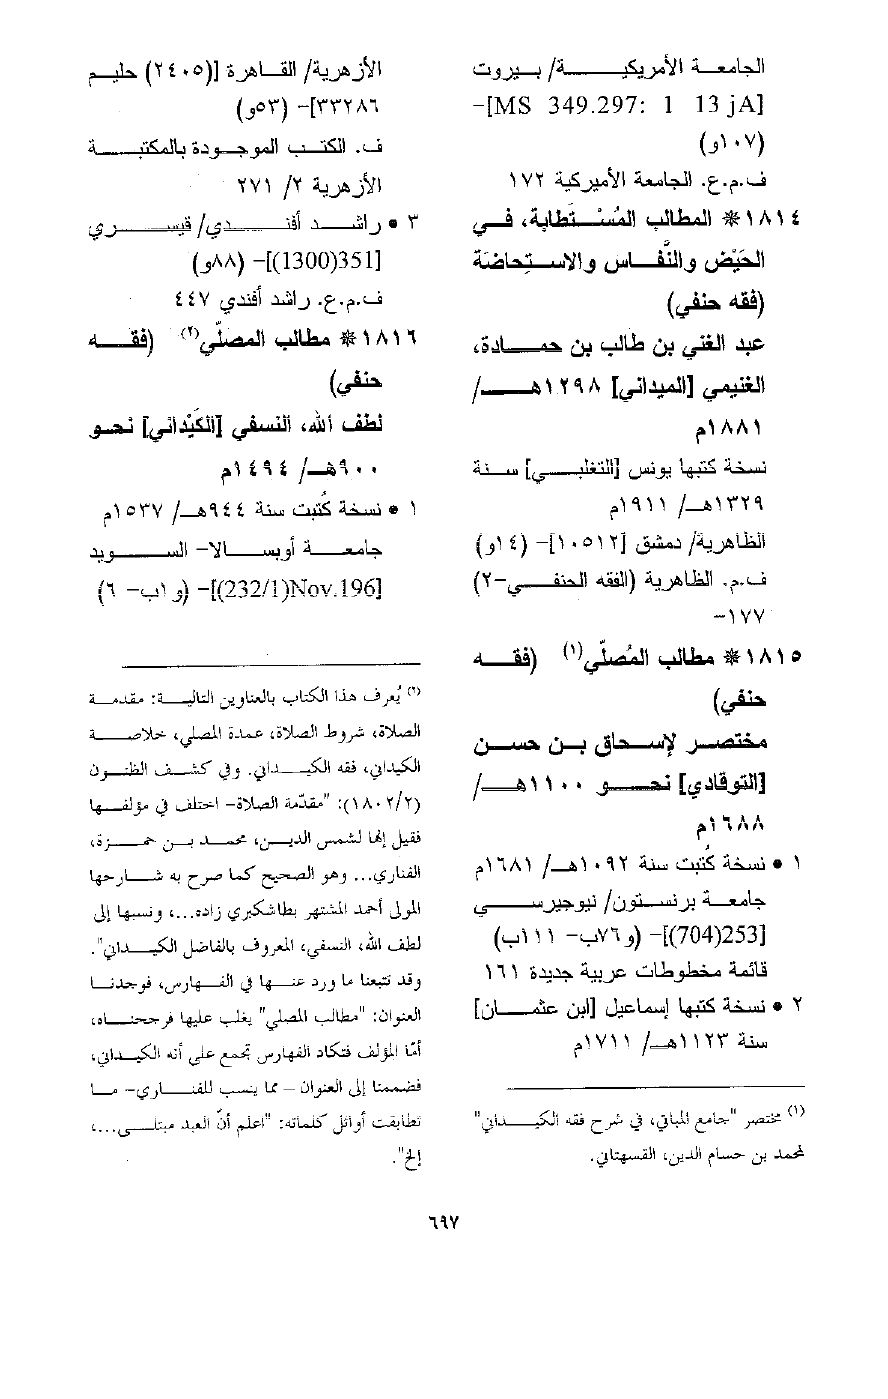 الجامعة الأمريكية/ بيروت
[MS 349.297: 1 13 jA]-
(١٠٧و)
ف.م.ع. الجامعة الأميركية ١٧٢
١٨١٤ * المطالب المُسْتَطابة، في
الحَيْض والنَّفاس والاستحاضة
(فقه حنفي)
عبد الغني بن طالب بن حمادة،
الغنيمي [الميداني] ١٢٩٨هـ/
١٨٨١م
نسخة كتبها يونس [التغلبي] سنة
١٣٢٩هـ/ ١٩١١م
الظاهرية/ دمشق [١٠٥١٢]- (١٤و)
ف.م. الظاهرية (الفقه الحنفي-٢)
١٧٧-
١٨١٥ * مطالب المُصلّي(١) (فقه
حنفي)
مختصر لإسحاق بن حسن
[التوقادي] نحو ١١٠٠هـ/
١٦٨٨م
١ • نسخة كُتبت سنة ١٠٩٢هـ/ ١٦٨١م
جامعة برنستون/ نيوجيرسي
[253(704)]- (و٧٦ب- ١١١ب)
قائمة مخطوطات عربية جديدة ١٦١
٢ • نسخة كتبها إسماعيل [ابن عثمان]
سنة ١١٢٣هـ/ ١٧١١م
(١) مختصر "جامع المباني، في شرح فقه الكيداني"
لمحمد بن حسام الدين، القسهتاني.
الأزهرية/ القاهرة [(٢٤٠٥) حليم
٣٣٢٨٦]- (٥٣و)
ف. الكتب الموجودة بالمكتبة
الأزهرية ٢/ ٢٧١
٣ • راشد أفندي/ قيسري
[351(1300)]- (٨٨و)
ف.م.ع. راشد أفندي ٤٤٧
١٨١٦ * مطالب المصلّي(٢) (فقه
حنفي)
لطف الله، النسفي [الكَيْداني] نحو
٩٠٠هـ/ ١٤٩٤م
١ • نسخة كُتبت سنة ٩٤٤هـ/ ١٥٣٧م
جامعة أوبسالا- السويد
[Nov.196(232/1)]- (و ١ب- ٦)
(٢) يُعرف هذا الكتاب بالعناوين التالية: مقدمة
الصلاة، شروط الصلاة، عمدة المصلي، خلاصة
الكيداني، فقه الكيداني. وفي كشف الظنون
(١٨٠٢/٢): "مقدّمة الصلاة- اختلف في مؤلفها
فقيل إنها لشمس الدين، محمد بن حمزة،
الفناري... وهو الصحيح كما صرح به شارحها
المولى أحمد المشتهر بطاشكبري زاده...، ونسبها إلى
لطف الله، النسفي، المعروف بالفاضل الكيداني".
وقد تتبعنا ما ورد عنها في الفهارس، فوجدنا
العنوان: "مطالب المصلي" يغلب عليها فرجحناه،
أمّا المؤلف فتكاد الفهارس تجمع على أنه الكيداني،
فضممنا إلى العنوان - مما ينسب للفناري- ما
تطابقت أوائل كلماته: "اعلم أنّ العبد مبتلى...،
إلخ".
٦٩٧